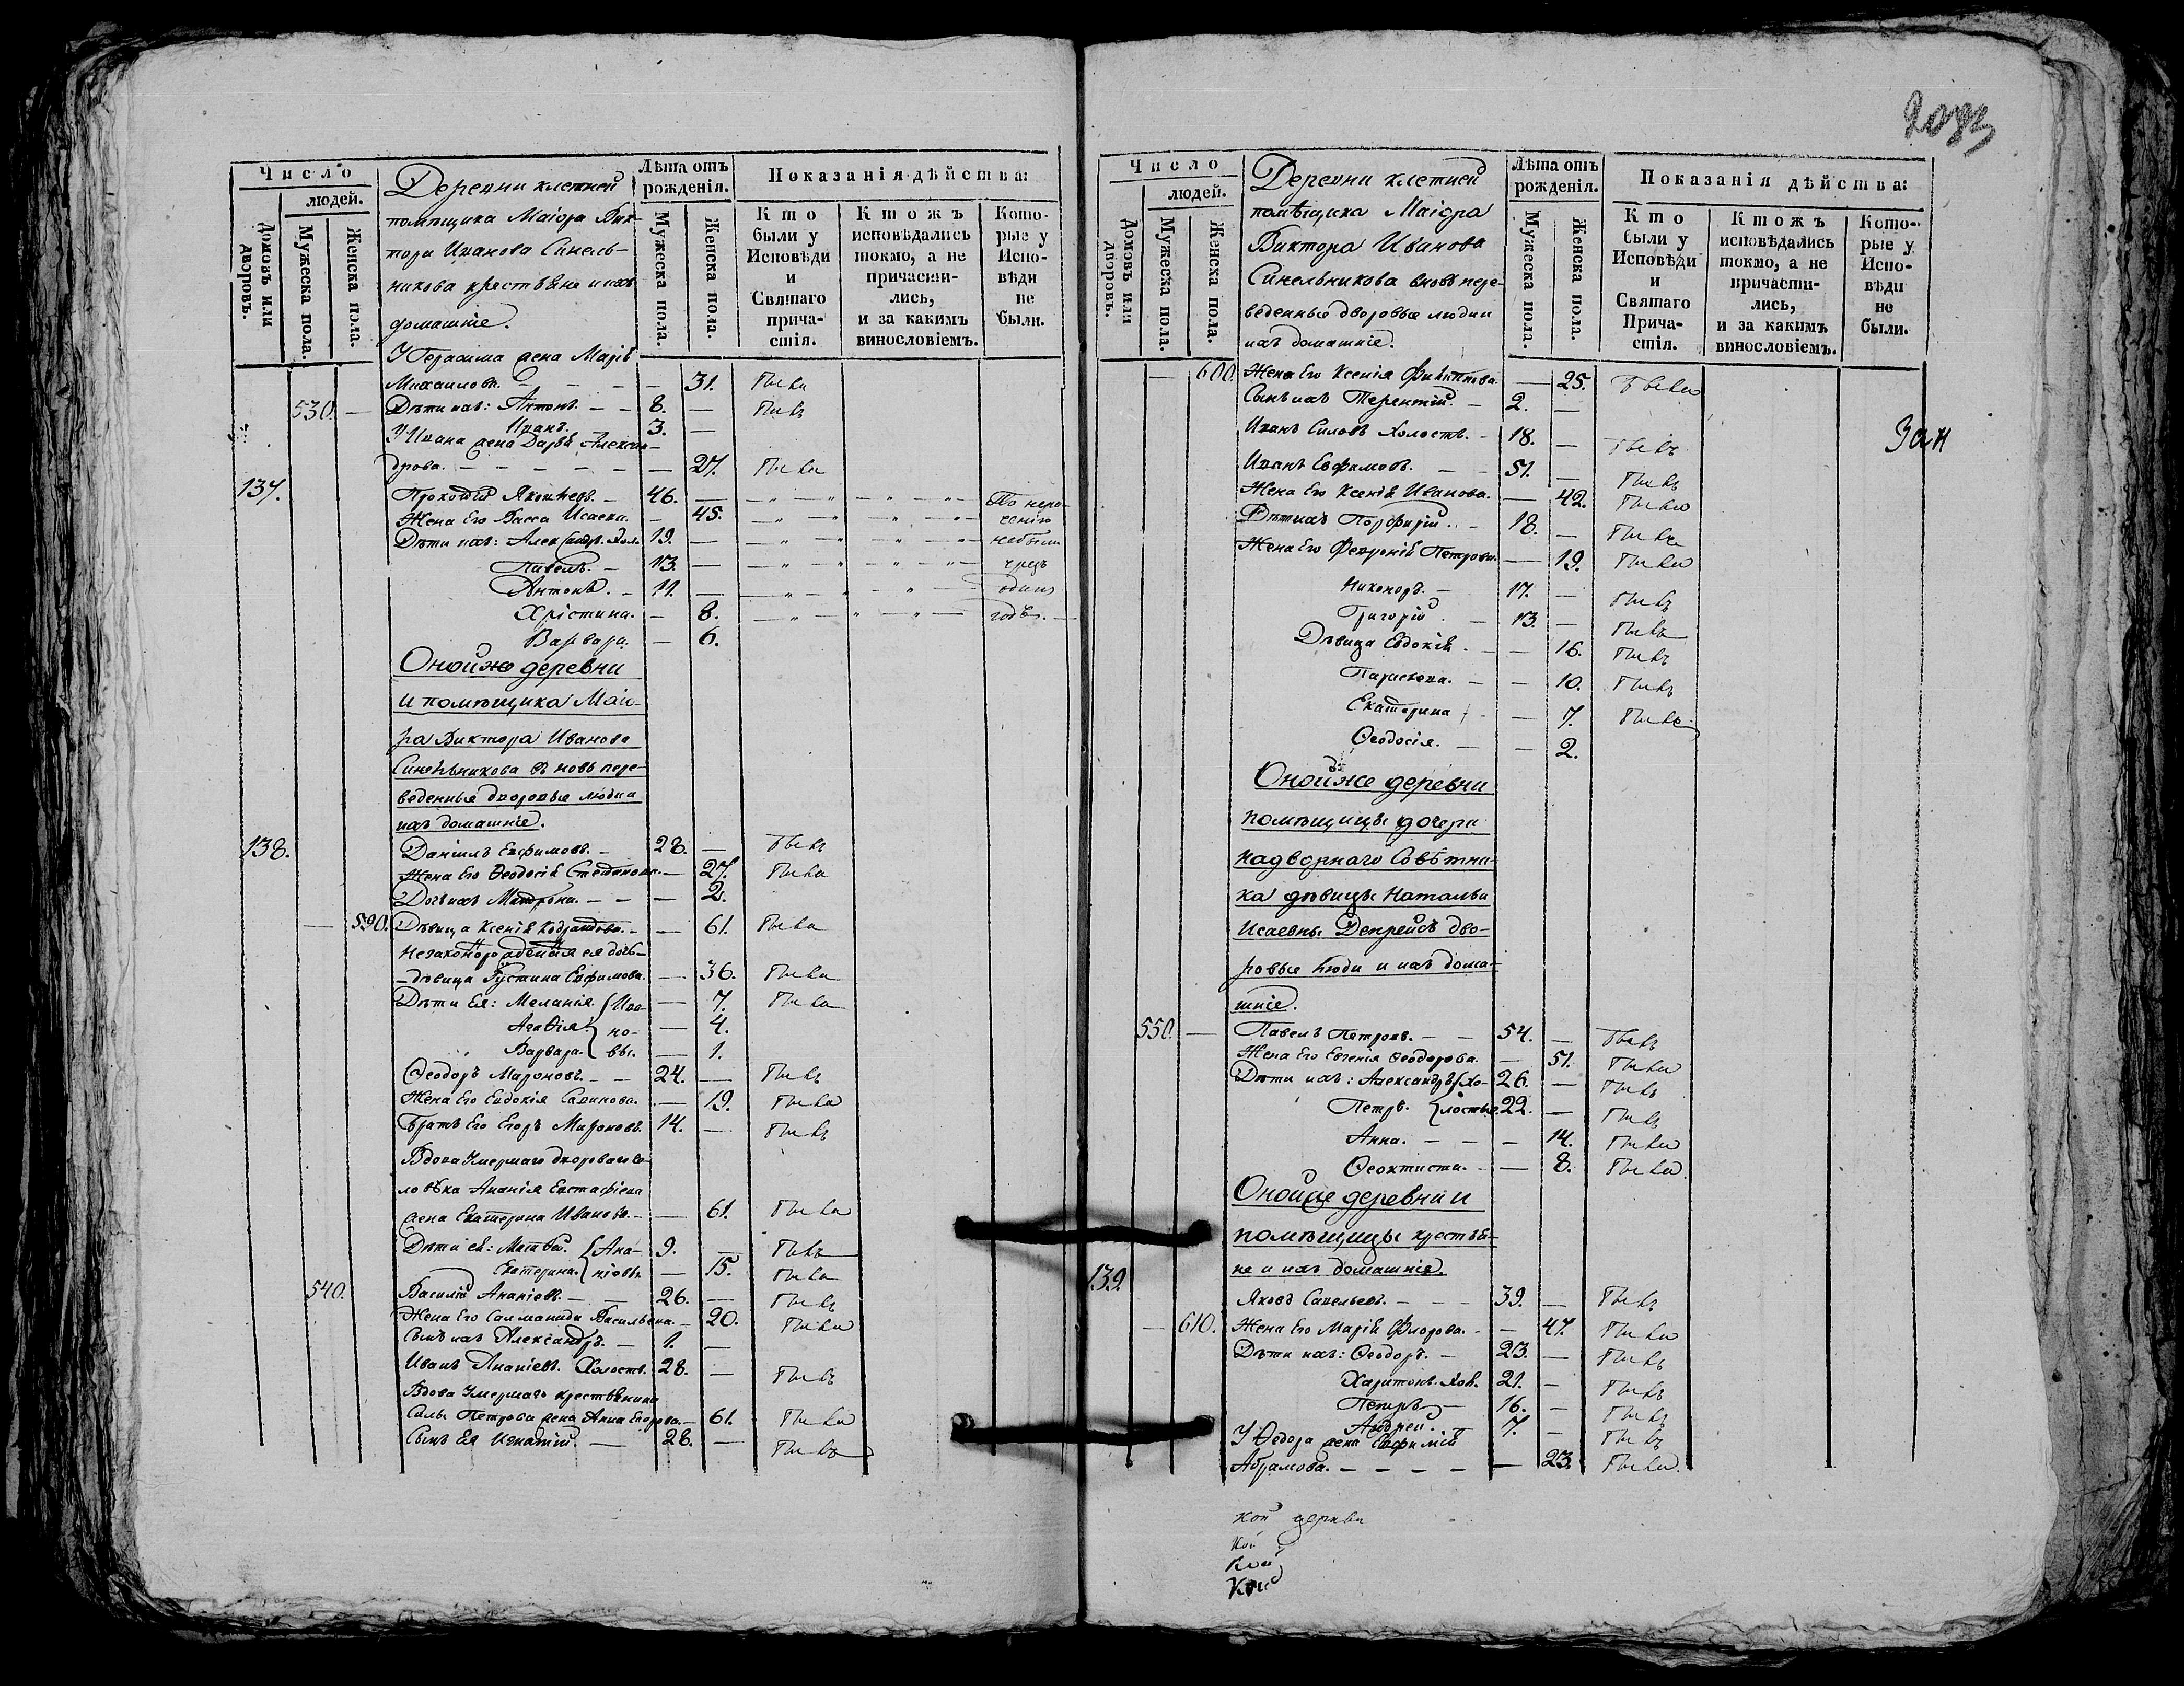 Число
людей.
Домовъ или дворовъ.
Мужеска пола.
Женска пола.
Деревни клетней
помѣщика Маіора Вик-
тора Иванова Синель-
никова крестьяне и ихъ
домашніе.
Лѣта отъ рожденія.
Мужеска пола.
Женска пола.
Показанія дѣйства:
Кто были у Исповѣди и Святаго прича-стія.
Кто жъ исповѣдались токмо, а не причасти-лись, и за какимъ винословіемъ.
Кото-рые у Испо-вѣди не были.
У Герасима жена Марія
Михаилова. 31. была
530. Дѣти ихъ: Антонъ. 8. былъ
Иванъ. 3.
У Ивана жена Дарья Алексан-
дрова. 27. была
137. Прокофій Яковлевъ. 46. По нера-
Жена Его Васса Исаева. 45. чению
Дѣти ихъ: Александръ. Хол. 19. небыли
Павелъ. 13. чрезъ
Антонъ. 11. одинъ
Хрістина. 8. годъ.
Варвара. 6.
Онойже деревни
и помѣщика Маіо-
ра Виктора Иванова
Синельникова въ новь пере-
веденные дворовые люди и
ихъ домашніе.
138. Даніилъ Евфимовъ. 28. былъ
Жена Его Ѳеодосія Степанова. 27. была
Дочь ихъ Матрона. 2.
590. Дѣвица Ксенія 61. была
Незаконорожденная ея дочь
дѣвица Іустина Евфимова. 36. была
Дѣти Ея: Меланія. Ива- 7. была
Агаѳія но- 4.
Варвара. вы. 1.
Ѳеодоръ Мироновъ. 24. былъ
Жена Его Евдокія Савинова. 19. была
Братъ Его Егоръ Мироновъ. 14. былъ
Вдова Умершаго двороваго че-
ловѣка Ананія Евстафіева
жена Екатерина Иванова. 61. была
Дѣти ея: Матвей. Ана- 9. былъ
Екатерина. ніевы 15. была
540. Василій Ананіевъ. 26. былъ
Жена Его Саломанида Васильева. 20. была
Сынъ ихъ Александръ. 1.
Иванъ Ананіевъ. Холостъ. 28. былъ
Вдова Умершаго крестьянина
Силы Петрова жена Анна Егорова. 61. была
Сынъ Ея Игнатій. 28. былъ
Число
людей.
Домовъ или дворовъ.
Мужеска пола.
Женска пола.
Деревни клетней
помѣщика Маіора
Виктора Иванова
Синельникова вновь пере-
веденные дворовые люди и
ихъ домашніе.
Лѣта отъ рожденія.
Мужеска пола.
Женска пола.
Показанія дѣйства:
Кто были у Исповѣди и Святаго Прича-стія.
Кто жъ исповѣдались токмо, а не причасти-лись, и за какимъ винословіемъ.
Кото-рые у Испо-вѣди не были.
600. Жена Его Ксенія Филиппова. 25. была
Сынъ ихъ Терентій. 2.
Иванъ Силовъ Холостъ. 18. былъ
Зан
Иванъ Евфимовъ. 51. былъ
Жена Его Ксенія Иванова. 42. была
Дѣти ихъ Порфирій. 18. былъ
Жена Его Февронія Петрова. 19. была
Никоноръ. 17. былъ
Григорій. 13. былъ
Дѣвица Евдокія. 16. былъ
Параскева. 10. былъ
Екатерина 7. была
Ѳеодосія. 2.
Онойже деревни
помѣщицы дочери
надворнаго Совѣтни-
ка дѣвицы Натальи
Исаевны Депрейсъ дво-
ровые люди и ихъ дома-
шніе.
550. Павелъ Петровъ. 54. былъ
Жена Его Евгенія Ѳеодорова. 51. была
Дѣти ихъ: Александръ Хо- 26. былъ
Петръ. лостые. 22. былъ
Анна. 14. была
Ѳеоктиста. 8. была
Онойже деревни и
помѣщицы крестья-
не и ихъ домашніе.
139.
Яковъ Савельевъ. 39. былъ
610. Жена Его Марія Флорова. 47. была
Дѣти ихъ: Ѳеодоръ. 23. былъ
Харитонъ. Хол. 21. былъ
Петръ 16. былъ
Андрей. 7. былъ
У Ѳедора жена Евфимія
Абрамова. 23. была
кой церкви
Кой
Кой
Кой